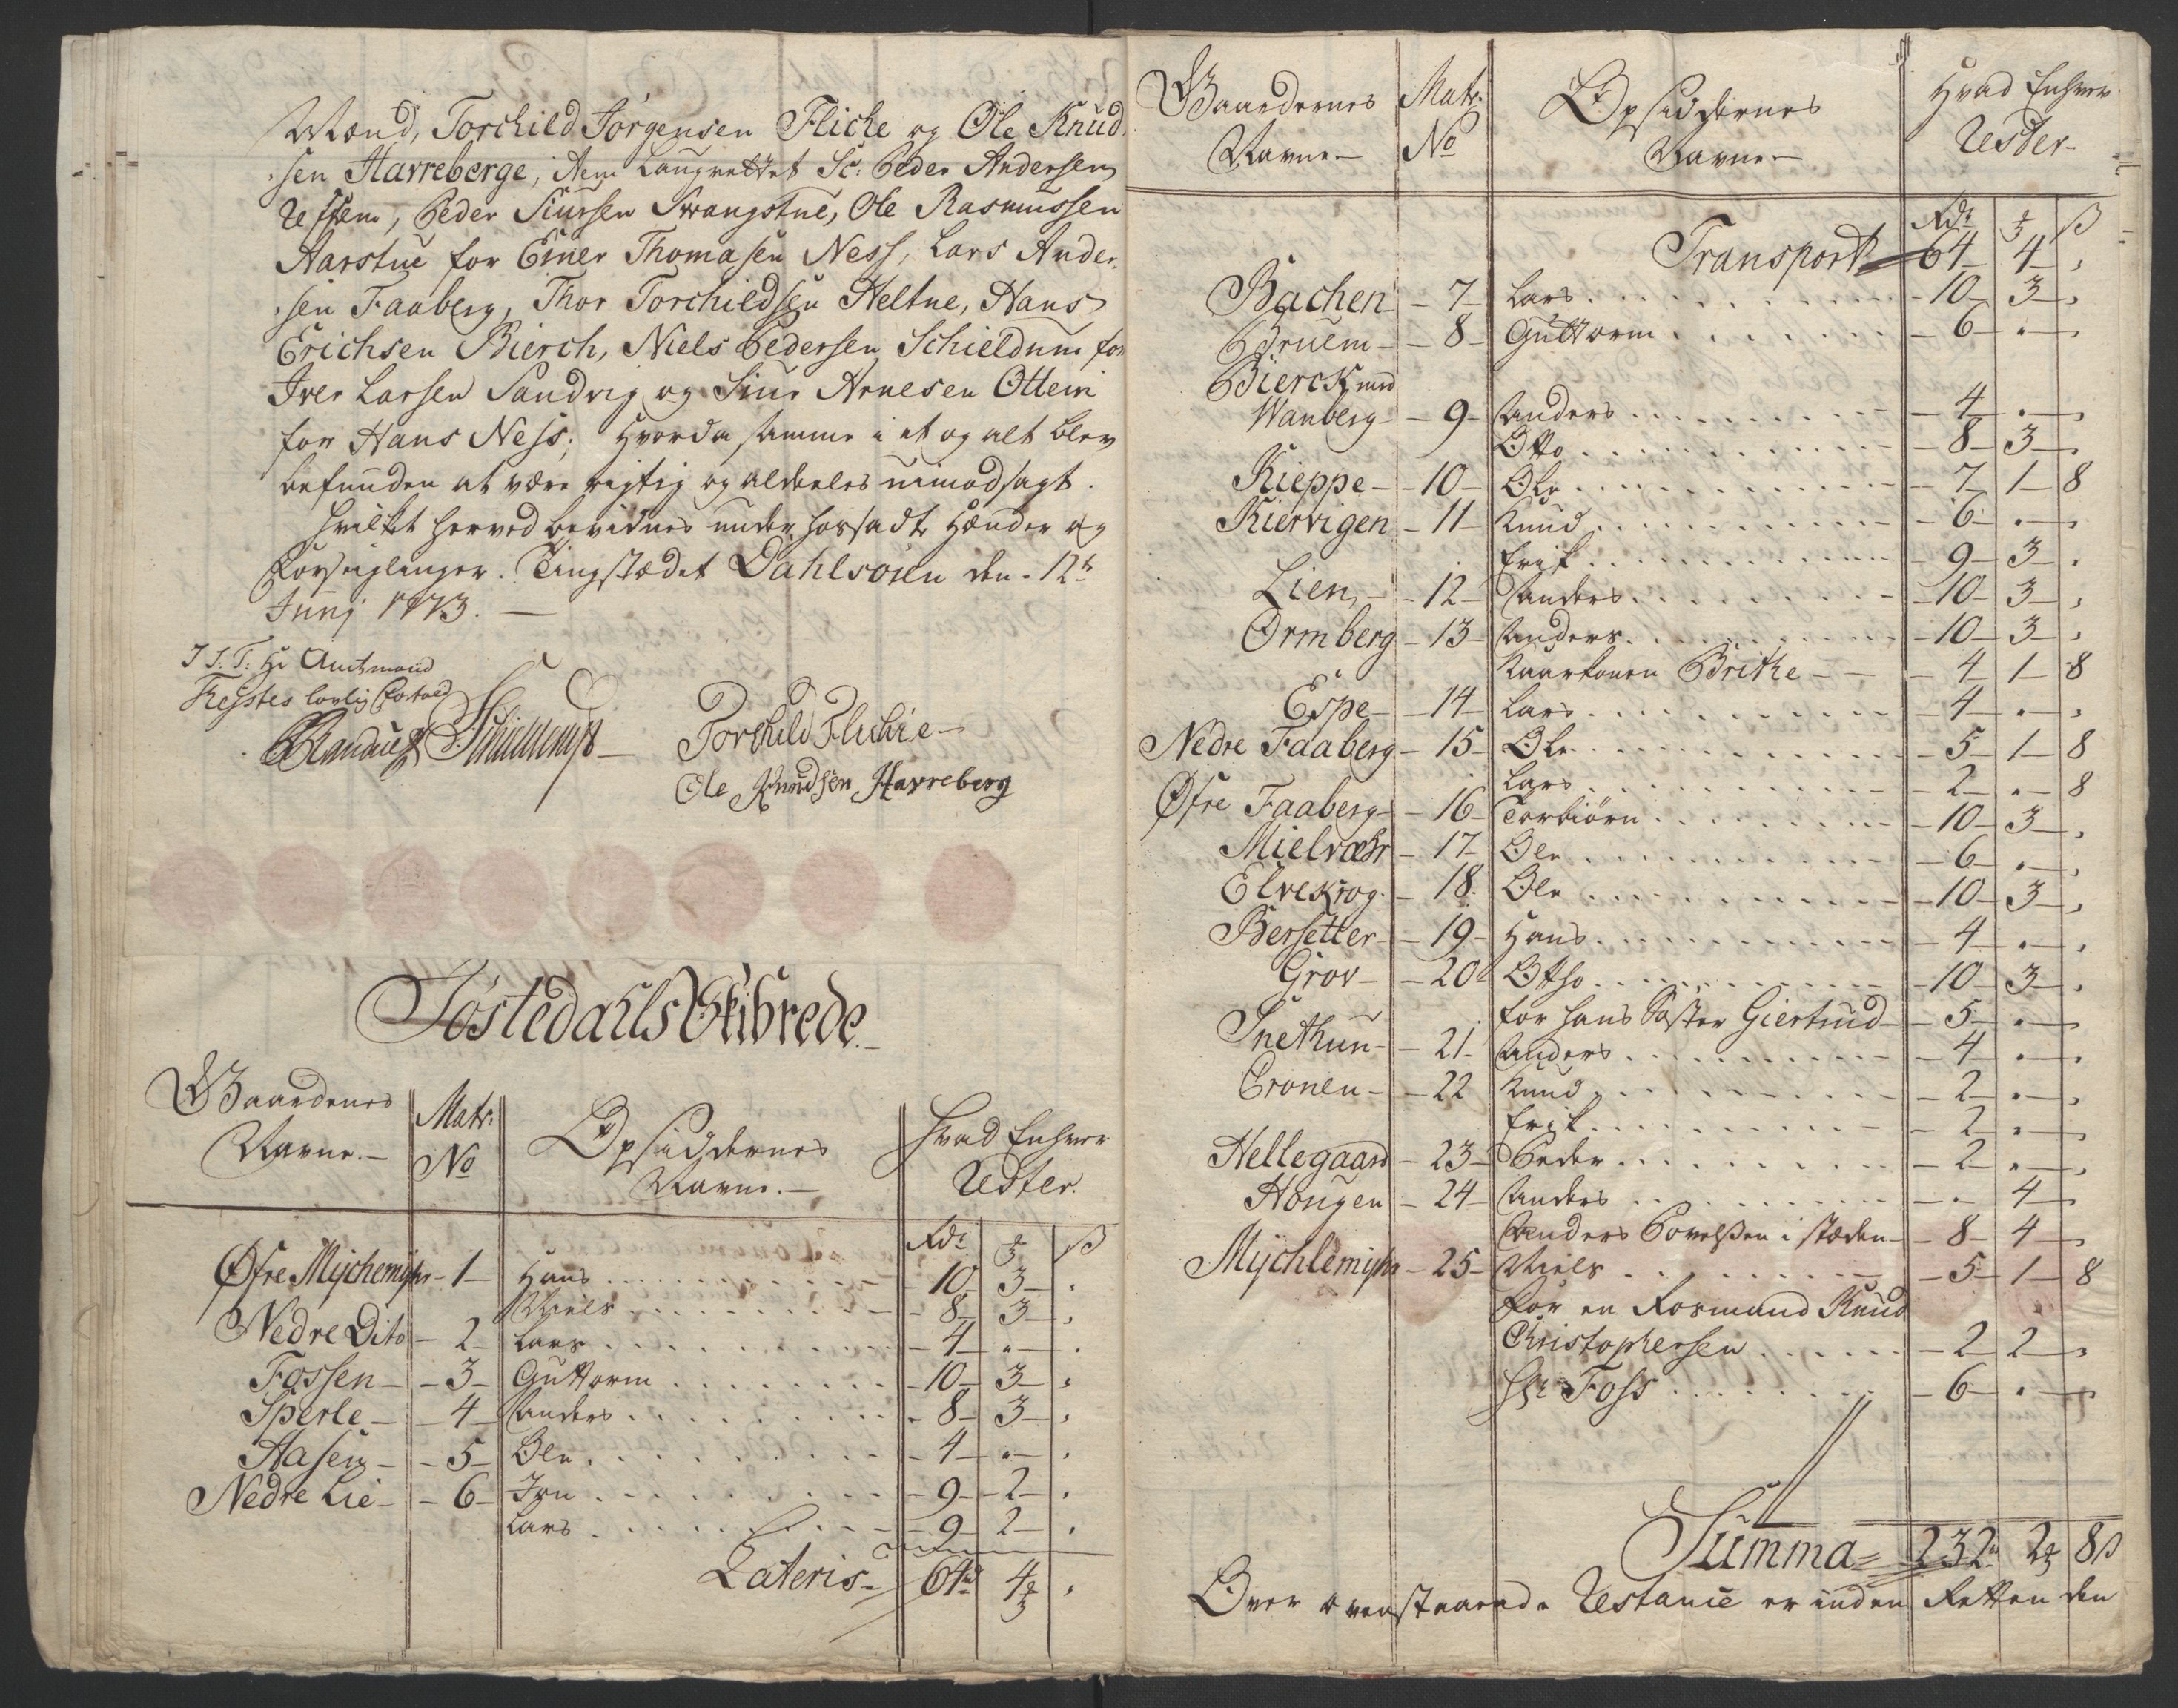 Mænd, Torchild Jørgensen Fliche og Ole Knud-
sen Harreberge, item Laugrettet Sr: Peder Andersen
Uttem, Peder Siursen Svangstue, Ole Rasmussen
Aarstue for Einer Thomasen Ness, Lars Ander-
sen Faaberg, Thor Torchildsen Heltne, Hans
Erichsen Bierch, Niels Pedersen Schieldum for
Iver Larsen Sandvig og Siur Arnesen Ottem
for Hans Ness; hvorda samme i et og alt blev
befunden at være rigtig og aldeeles uimodsagt.
Hvilket herved bevidnes under hossadte Hænder og
Forseiglinger. Tingstædet Dahlsøien den 12te
Junj 1773.
I S: T: Hr Amtmand
Heystes lovlig Forfald
Torchild Flichie
Ole Knudsen Harreberg
Jøstedahls Skibrede
Gaardenes
Navne
Matr:
No
Opsiddernes
Navne
Hvad Enhver
Rester
Rdr ß
Øfre Mychemyhr 1 Hans 10 3
Niels 8 3
Nedre Dito 2 Lars 4
Fossen 3 Guttorm 10 3
Sperle 4 Anders 8 3
Aasen 5 Ole 4
Nedre Lie 6 Jon 9 2
Lars 9 2
Lateris 64 4
Gaardernes
Navne
Matr:
No
Opsiddernes
Navne
Hvad Enhver
Rester
Rdr ß
Transport 64 4
Bachen 7 Lars 10 3
Bruem 8 Guttorm 6
Bierck med
Wanberg 9 Anders 4
Otto 8 3
Kieppe 10 Ole 7 1 8
Kiervigen 11 Knud 6
Erik 9 3
Lien 12 Anders 10 3
Ormberg 13 Anders 10 3
Kaarkonen Brithe 4 1 8
Espe 14 Lars 4
Nedre Faaberg 15 Ole 5 1 8
Lars 2 8
Øfre Faaberg 16 Torbiørn 10 3
Mielvær 17 Ole 6
Elvekrog 18 Ole 10 3
Bersetter 19 Hans 4
Grov 20 Otho 10 3
for hans Søster Giertrud 5
Snethun 21 Anders 4
Cronen 22 Knud 2
Erik 2
Hellegaard 23 Peder 2
Hougen 24 Anders 4
Anders Povelsen i stæden 8 4
Mychlemyhr 25 Niels 5 1 8
for en Rosmand Knud
Christophersen 2 2
Hr Foss 6
Summa 232 2 8ß
Over ovenstaaende Restance er inden Retten den